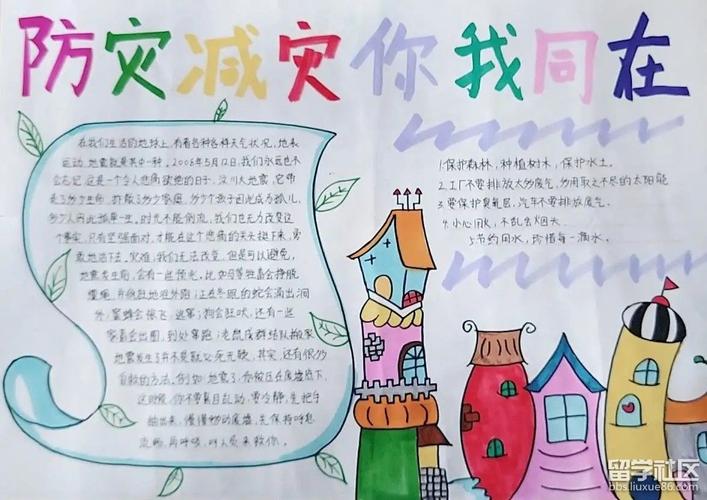 防灾减灾你我同在
在我们生活的地球上,有着各种各样天气状况,地表
运动,地震就是其中一种。2008年5月12日,我们永远也不
会忘记,这是一个令人悲痛欲绝的日子,汶川大地震,它带
走了多少生命,拆散了多少家庭,多少个孩子因此成为孤儿,
多少人因此孤单一生,时光不能倒流,我们也无力改变这
个事实,只有坚强面对,才能在这个悲痛的天天挺下来,勇
敢地活下去,灾难,我们无法改变,但是可以避免,
地震发生前,会有一些预兆,比如母等牲畜会挣脱
缰绳,
正在冬眠的蛇会滴出洞
外,蜜蜂会
狗会狂吠,还有一些
家禽会出圈,到处窜跑,老鼠成群结队搬家
地震发生了并不是就必死无疑,其实,还有很多
自救的方法,例如:地震了,你被压在废墟底下,
这时候,你不要盲目乱动,要冷静,先把手
抽出来,慢慢挪动废墟,先保持呼吸
流畅,再呼唤,叫人员来救你。
1.保护森林,种植树木,保护水土。
2.工厂不要排放太多废气,多用取之不尽的太阳能
3.要保护臭氧层,汽车不要排放废气。
4.小心用火,不乱丢烟头。
5节约用水,珍惜每一滴水。
留学社区
bbs.liuxue86.com